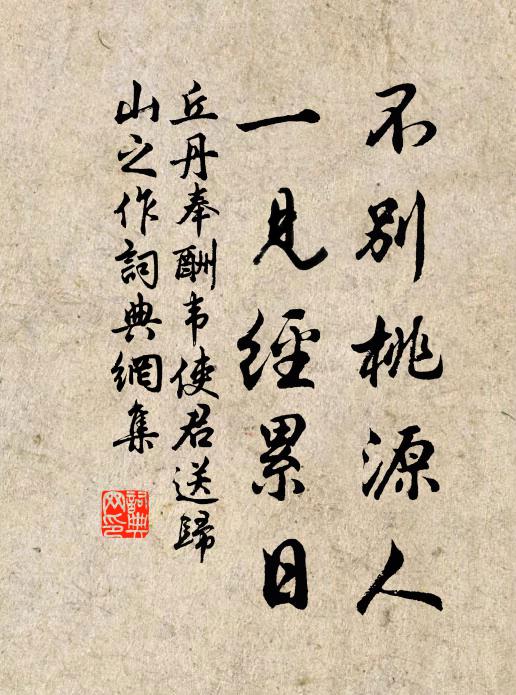 不别桃源人
一見經累日
丘丹奉酬韦使君送歸
山之作詞典網集
詞典网印